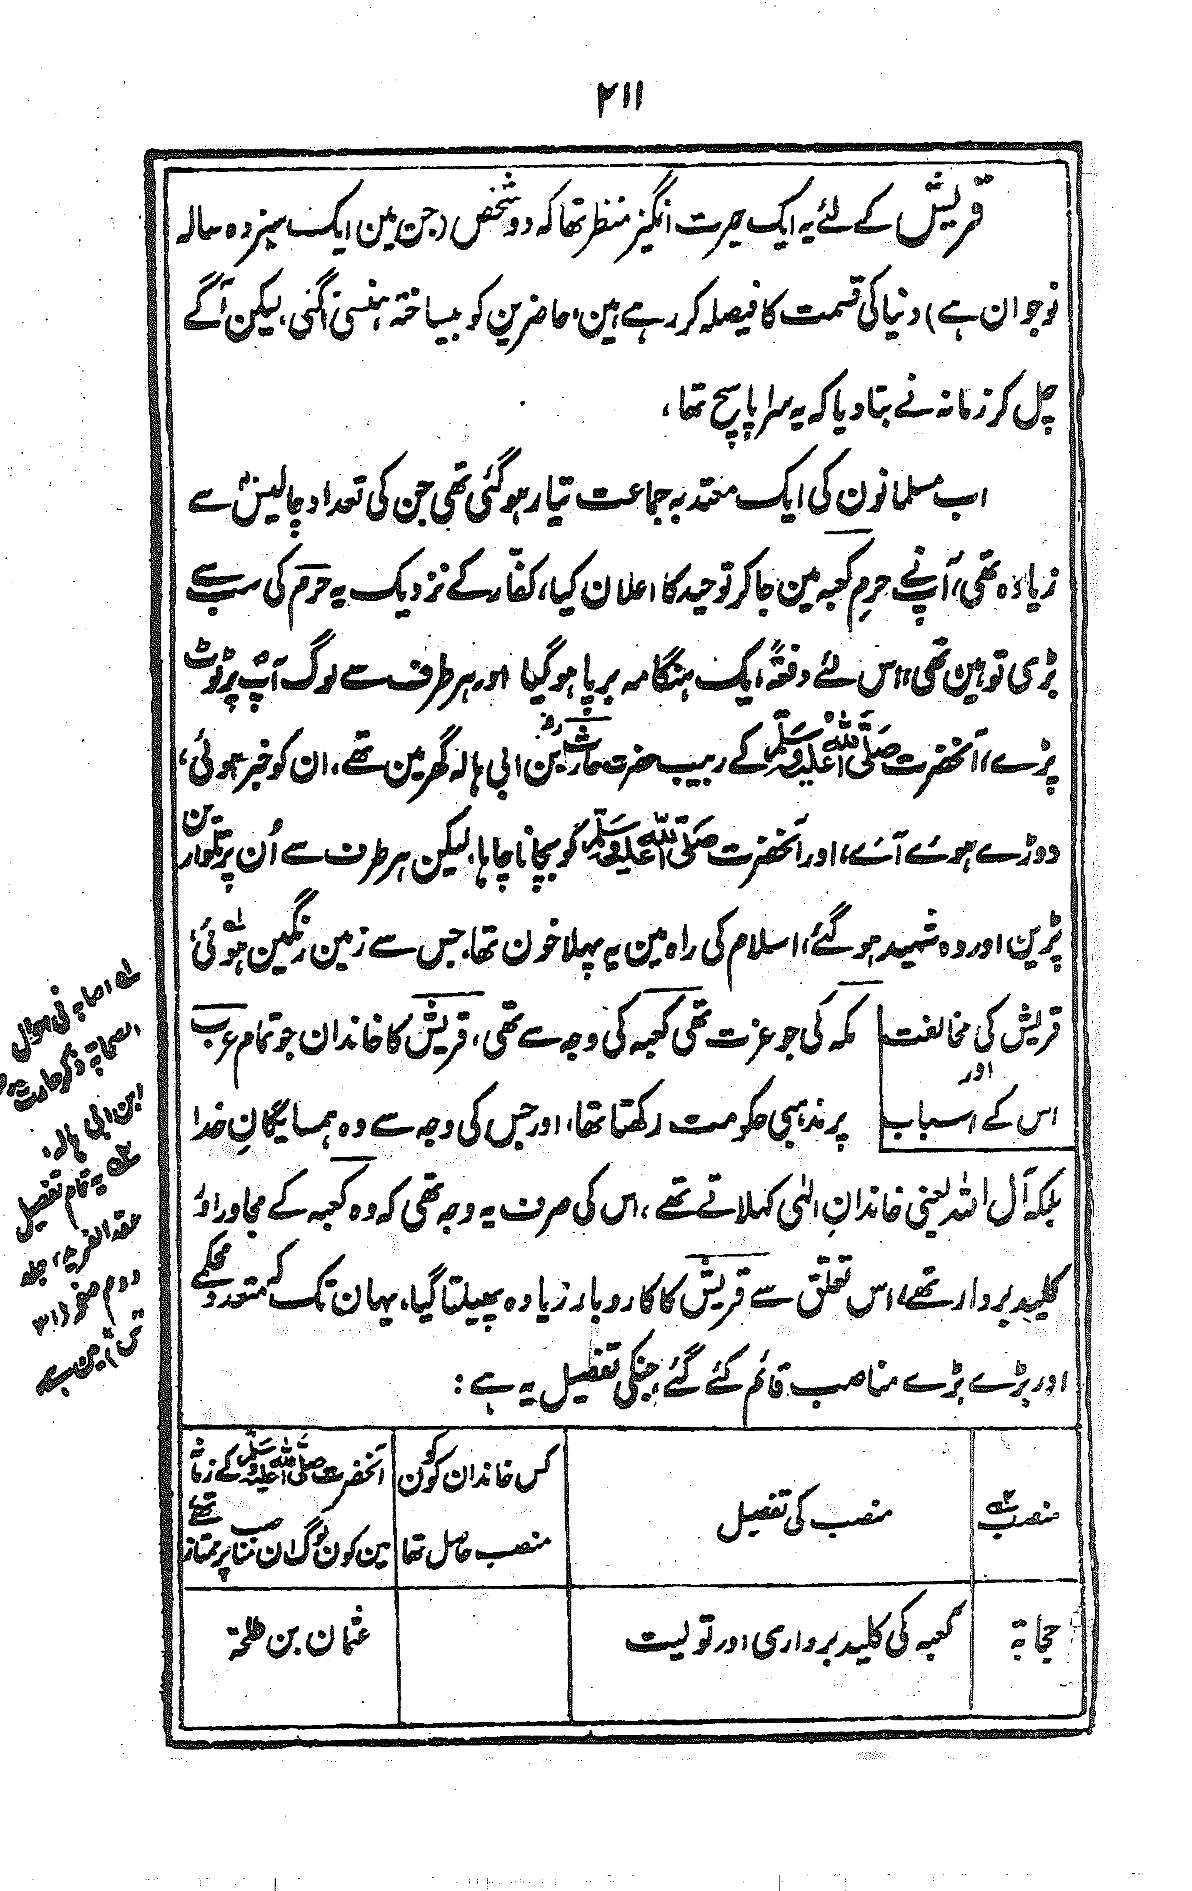 ۲۱۱
قریش کے لئے یہ ایک حیرت انگیز منظر تھا کہ دو شخص (جن مین ایک سیزدہ سالہ
نوجوان ہے) دنیا کی قسمت کا فیصلہ کر رہے ہین، حاضرین کو بیساختہ ہنسی آگئی، لیکن آگے
چل کر زمانہ نے بتا دیا کہ یہ سراپا سچ تھا،
اب مسلمانون کی ایک معتدبہ جماعت تیار ہو گئی تھی جن کی تعداد چالیس سے
زیادہ تھی، آپ نے حرمِ کعبہ مین جا کر توحید کا اعلان کیا، کفّار کے نزدیک یہ حرم کی سب سے
بڑی توہین تھی، اس لئے دفعۃً ایک ہنگامہ برپا ہو گیا اور ہر طرف سے لوگ آپ پر ٹوٹ
پڑے، آنحضرت صلی اللہ علیہ وسلم کے ربیب حضرت حارثؓ بن ابی ہالہ گھر مین تھے، ان کو خبر ہوئی،
دوڑے ہوئے آئے، اور آنحضرت صلی اللہ علیہ وسلم کو بچانا چاہا، لیکن ہر طرف سے اُن پر تلوارین
پڑین اور وہ شہید ہو گئے، اسلام کی راہ مین یہ پہلا خون تھا، جس سے زمین رنگین ہوئی،
قریش کی مخالفت
اور
اس کے اسباب
مکہ کی جو عزت تھی کعبہ کی وجہ سے تھی، قریش کا خاندان جو تمام عرب
پر مذہبی حکومت رکھتا تھا، اور جس کی وجہ سے وہ ہمسایگانِ خدا
بلکہ آل اللہ یعنی خاندانِ الٰہی کہلاتے تھے، اس کی صرف یہ وجہ تھی کہ وہ کعبہ کے مجاور اور
کلید بردار تھے، اس تعلق سے قریش کا کاروبار زیادہ پھیلتا گیا، یہان تک کہ متعدد محکمے
اور بڑے بڑے مناصب قائم کئے گئے، جنکی تفصیل یہ ہے:
منصب
منصب کی تفصیل
کس خاندان کو کون
منصب حاصل تھا
آنحضرت صلی اللہ علیہ وسلم کے زمانہ
مین کون لوگ ان مناصب پر ممتاز تھے
حجابۃ
کعبہ کی کلید برداری اور تولیت
عثمان بن طلحۃ
لہ اصابہ فی احوال
الصحابۃ ذکر حارث
ابن ابی ہالہ،
یہ تمام تفصیل
عقد الفرید، جلد
دوم صفحہ
مین ہے